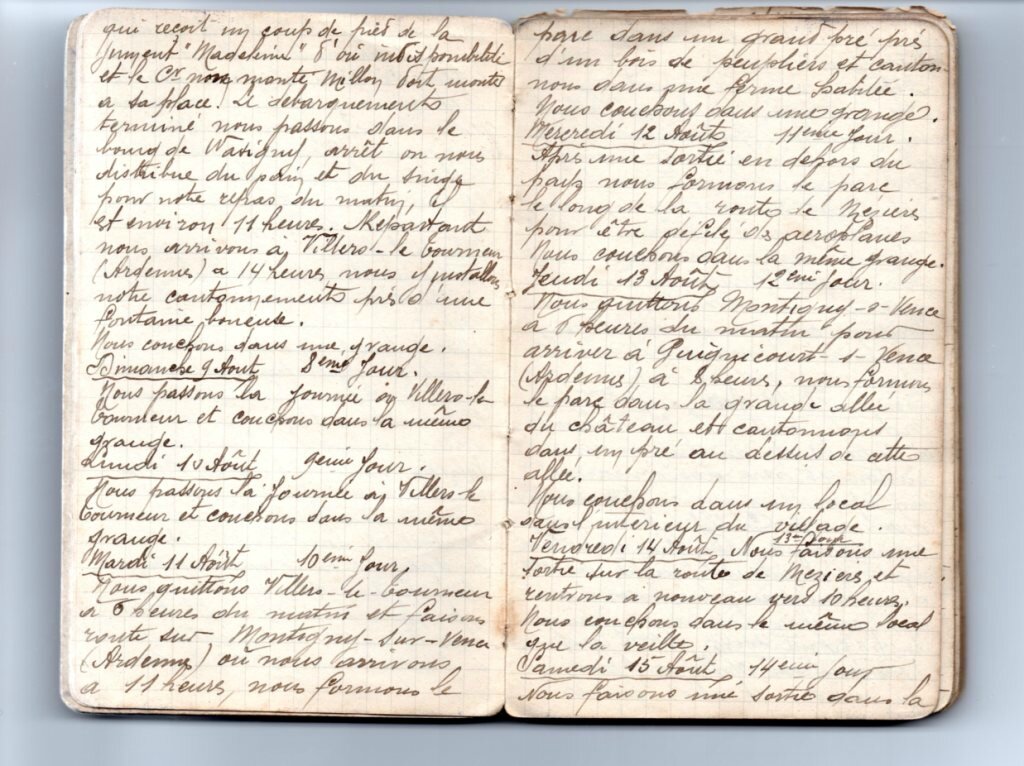 qui reçoit un coup de pied de la
jument "Madeleine" d'où indisponibilité
et le Cr non monté Millon doit monter
à sa place. Le débarquement
terminé nous passons dans le
bourg de Wasigny, arrêt on nous
distribue du pain et du singe
pour notre repas du matin, il
est environ 11 heures. Repartant
nous arrivons à Villers-le-Tourneur
(Ardennes) à 14 heures nous y installons
notre cantonnement près d'une
fontaine boueuse.
Nous couchons dans une grange.
Dimanche 9 Août 8ème Jour.
Nous passons la journée à Villers-le-
Tourneur et couchons dans la même
grange.
Lundi 10 Août 9ème Jour.
Nous passons la Journée à Villers-le
Tourneur et couchons dans la même
grange.
Mardi 11 Août 10ème Jour,
Nous quittons Villers-le-Tourneur
à heures du matin et faisons
route sur Montigny-sur-Vence
(Ardennes) où nous arrivons
à 11 heures, nous formons le
parc dans un grand pré près
d'un bois de peupliers et canton-
nons dans une ferme habitée.
Nous couchons dans une grange.
Mercredi 12 Août 11ème Jour.
Après une sortie en dehors du
pays nous formons le parc
le long de la route de Mezieres
pour être défilé des aeroplanes
Nous couchons dans la même grange.
Jeudi 13 Août 12ème Jour.
Nous quittons Montigny-s-Vence
à heures du matin pour
arriver à Guignicourt-s-Vence
(Ardennes) à 8 heures, nous formons
le parc dans la grande allée
du château et cantonnons
dans un pré au dessus de cette
allée.
Nous couchons dans un local
dans l'interieur du village.
Vendredi 14 Août 13ème Jour Nous faisons une
sortie sur la route de Mezieres et
rentrons à nouveau vers 10 heures.
Nous couchons dans le même local
que la veille.
Samedi 15 Août 14ème Jour
Nous faisons une sortie dans la